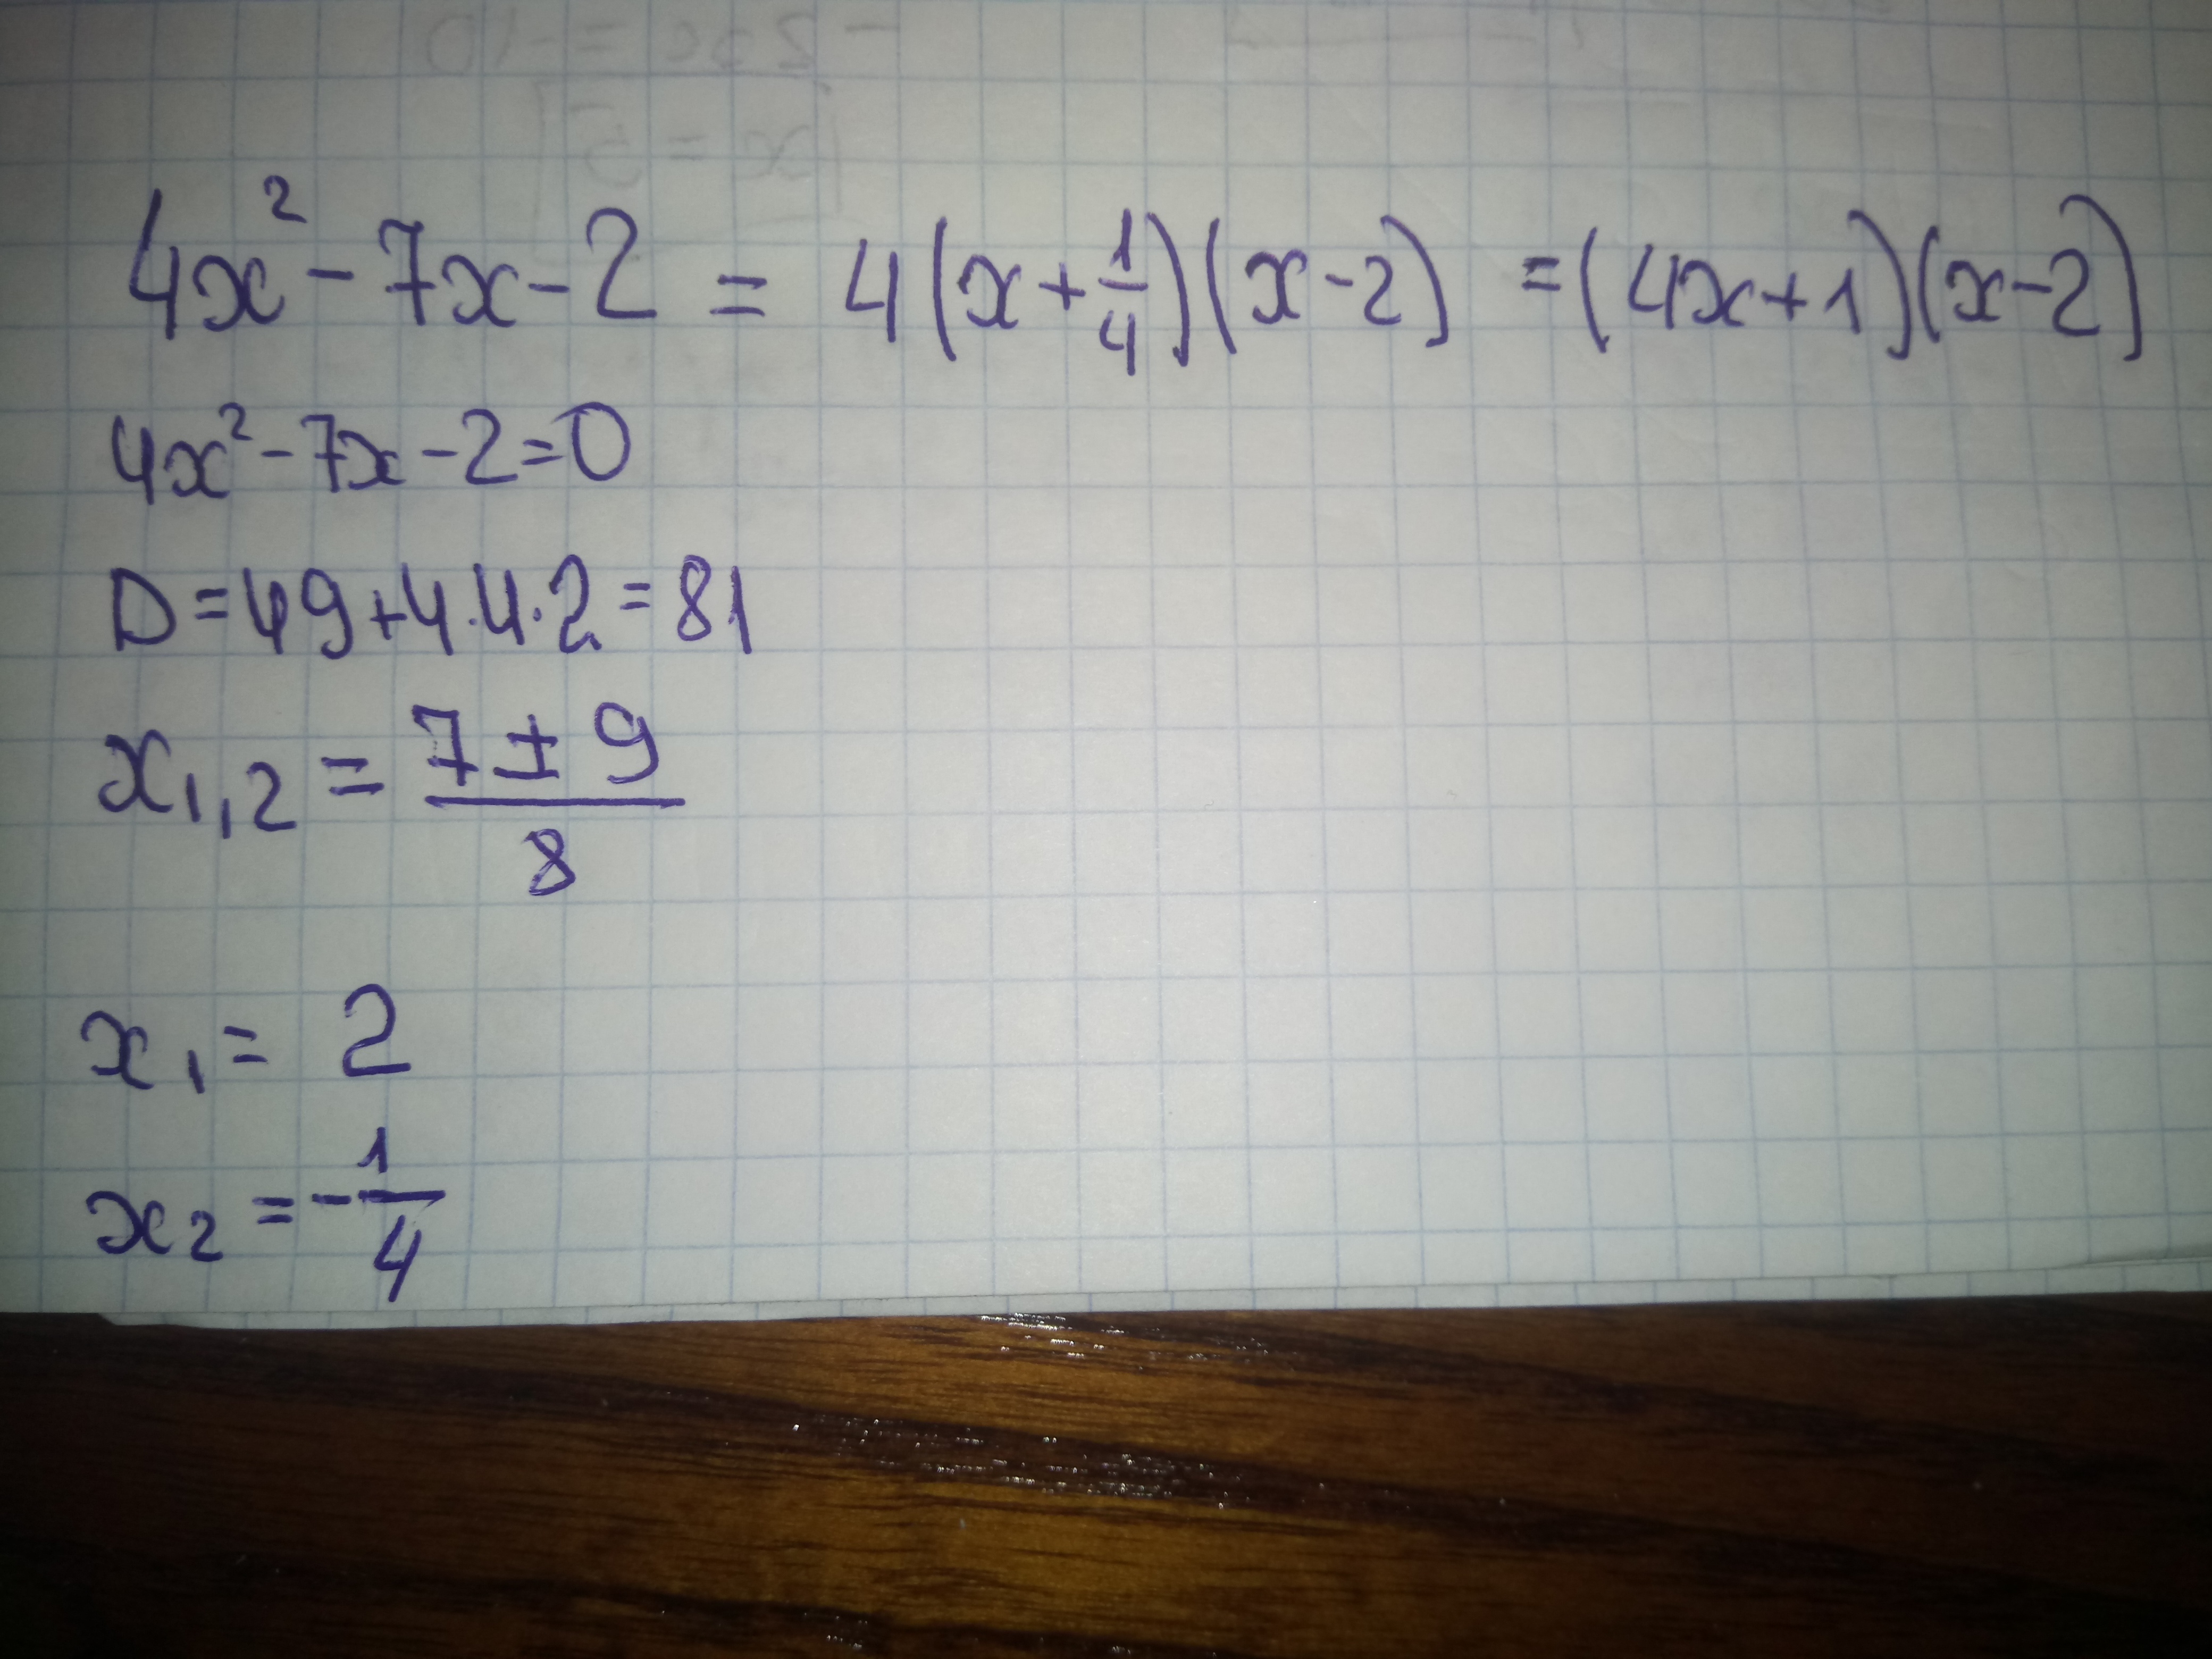 4x² - 7x - 2 = 4(x + 1/4)(x - 2) = (4x + 1)(x - 2)
4x² - 7x - 2 = 0
D = 49 + 4 · 4 · 2 = 81
x₁,₂ = (7 ± 9)/8
x₁ = 2
x₂ = - 1/4